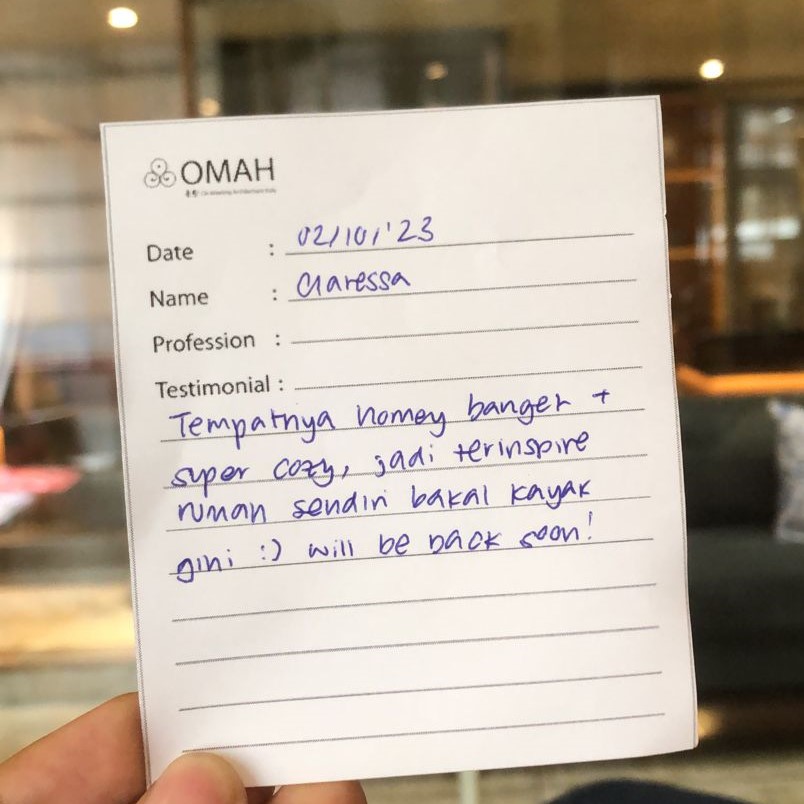 OMAH
Date : 02/10/'23
Name : Claressa
Profession :
Testimonial :
Tempatnya homey banget +
super cozy, jadi terinspire
rumah sendiri bakal kayak
gini :) will be back soon!